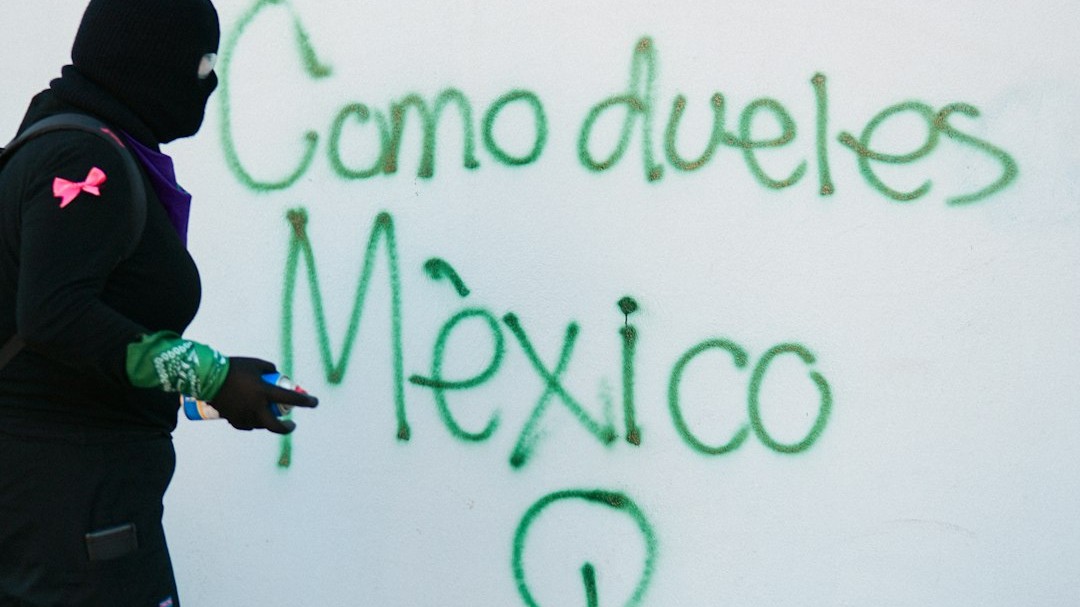 Como dueles
Mèxico